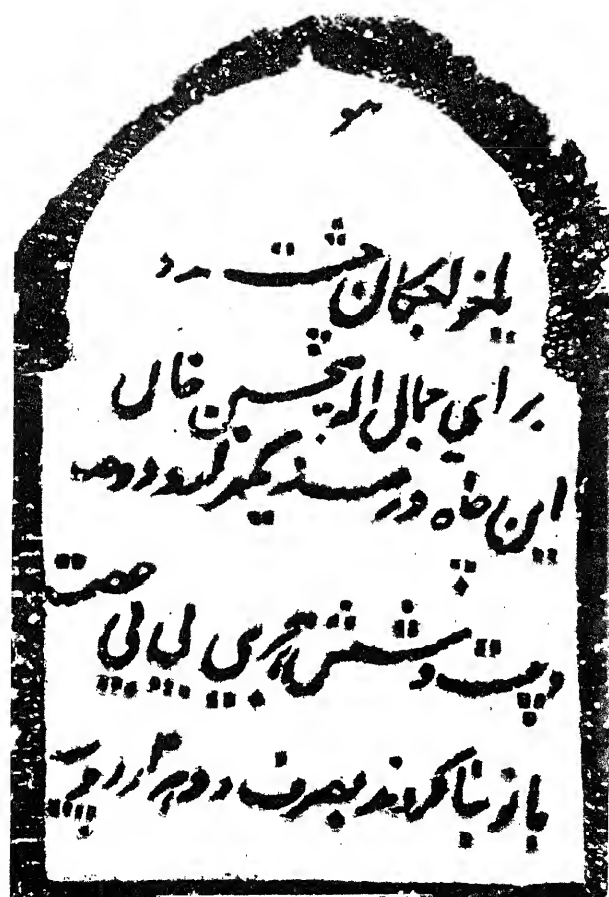 یا خواجگان چشت
برای جمال الدین حسین خان
این چاه در سنه یکهزار و دوصد
و بیست و شش هجری بی بی عصمت
بانو بنا کردند بصرف دو هزار روپیه